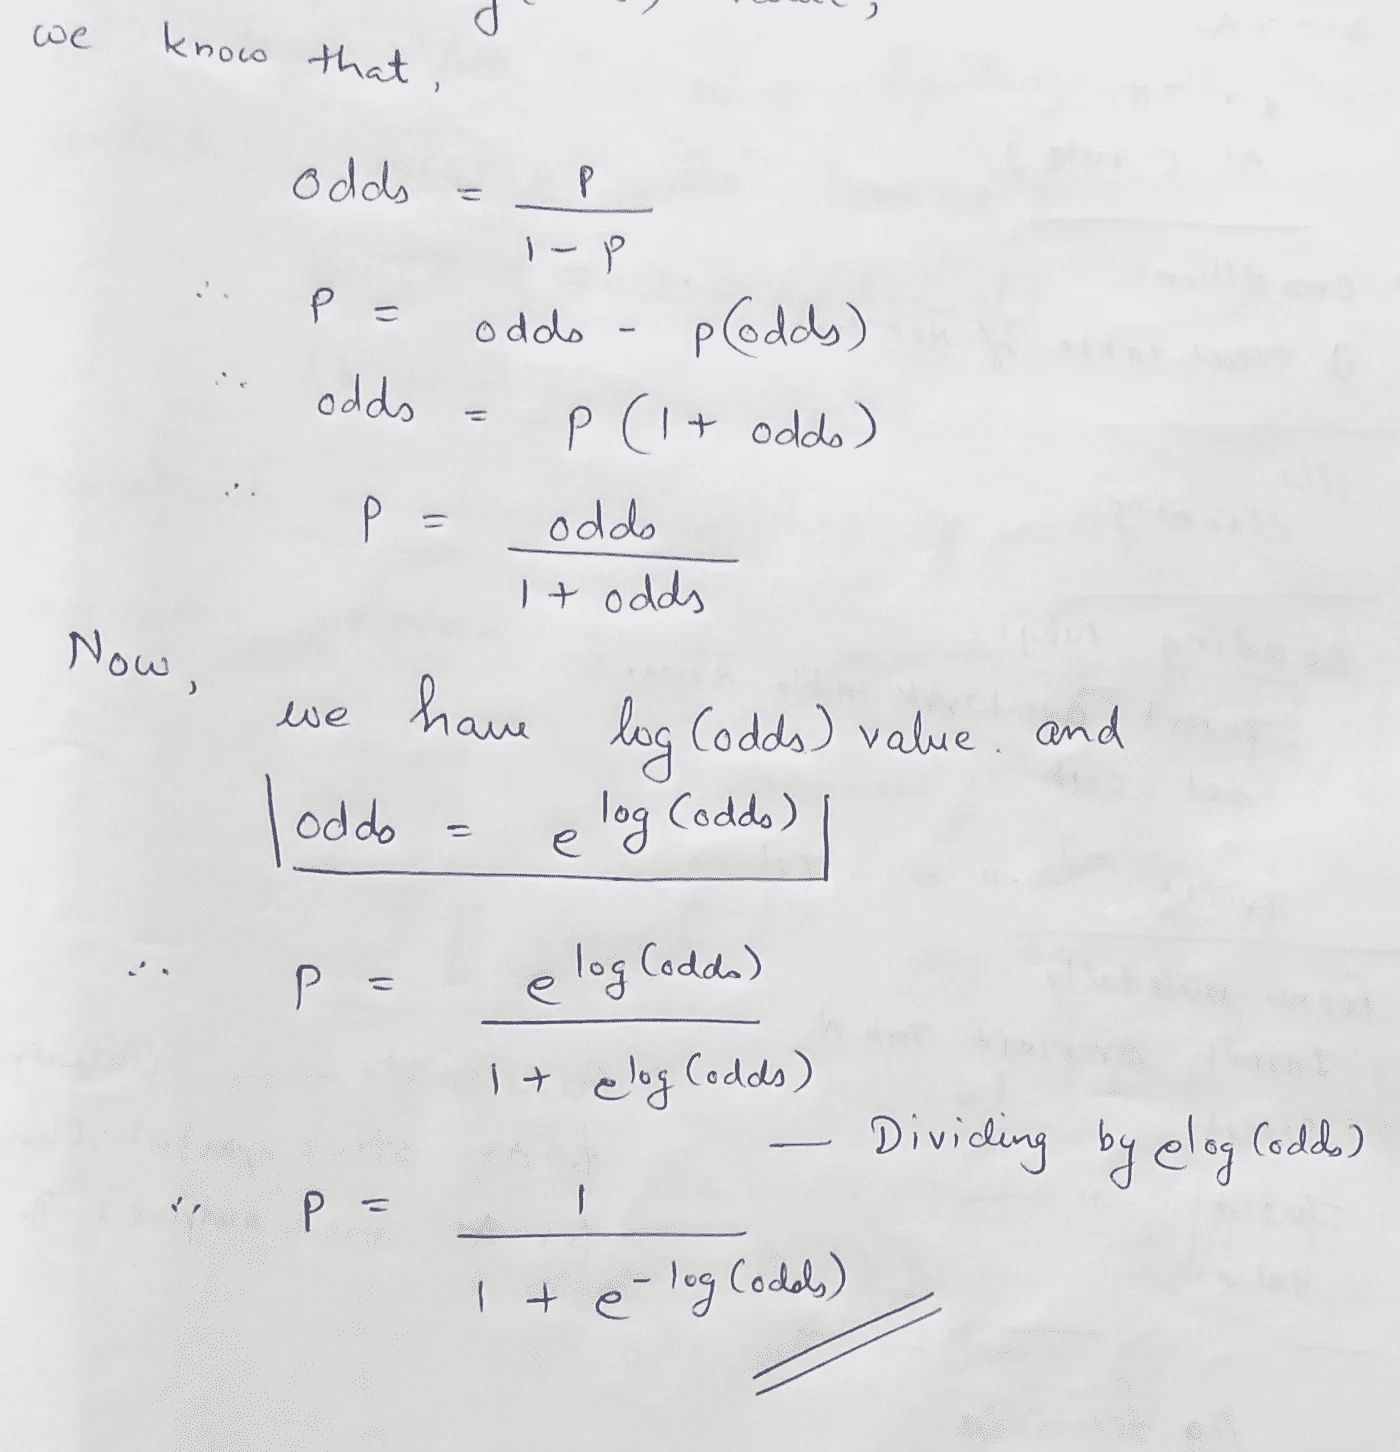 we know that,
odds = p / 1 - p
∴ p = odds - p(odds)
∴ odds = p (1 + odds)
∴ p = odds / 1 + odds
Now,
we have log (odds) value. and
odds = e^log (odds)
∴ p = e^log (odds) / 1 + e^log (odds)
— Dividing by e^log (odds)
∴ p = 1 / 1 + e^- log (odds)